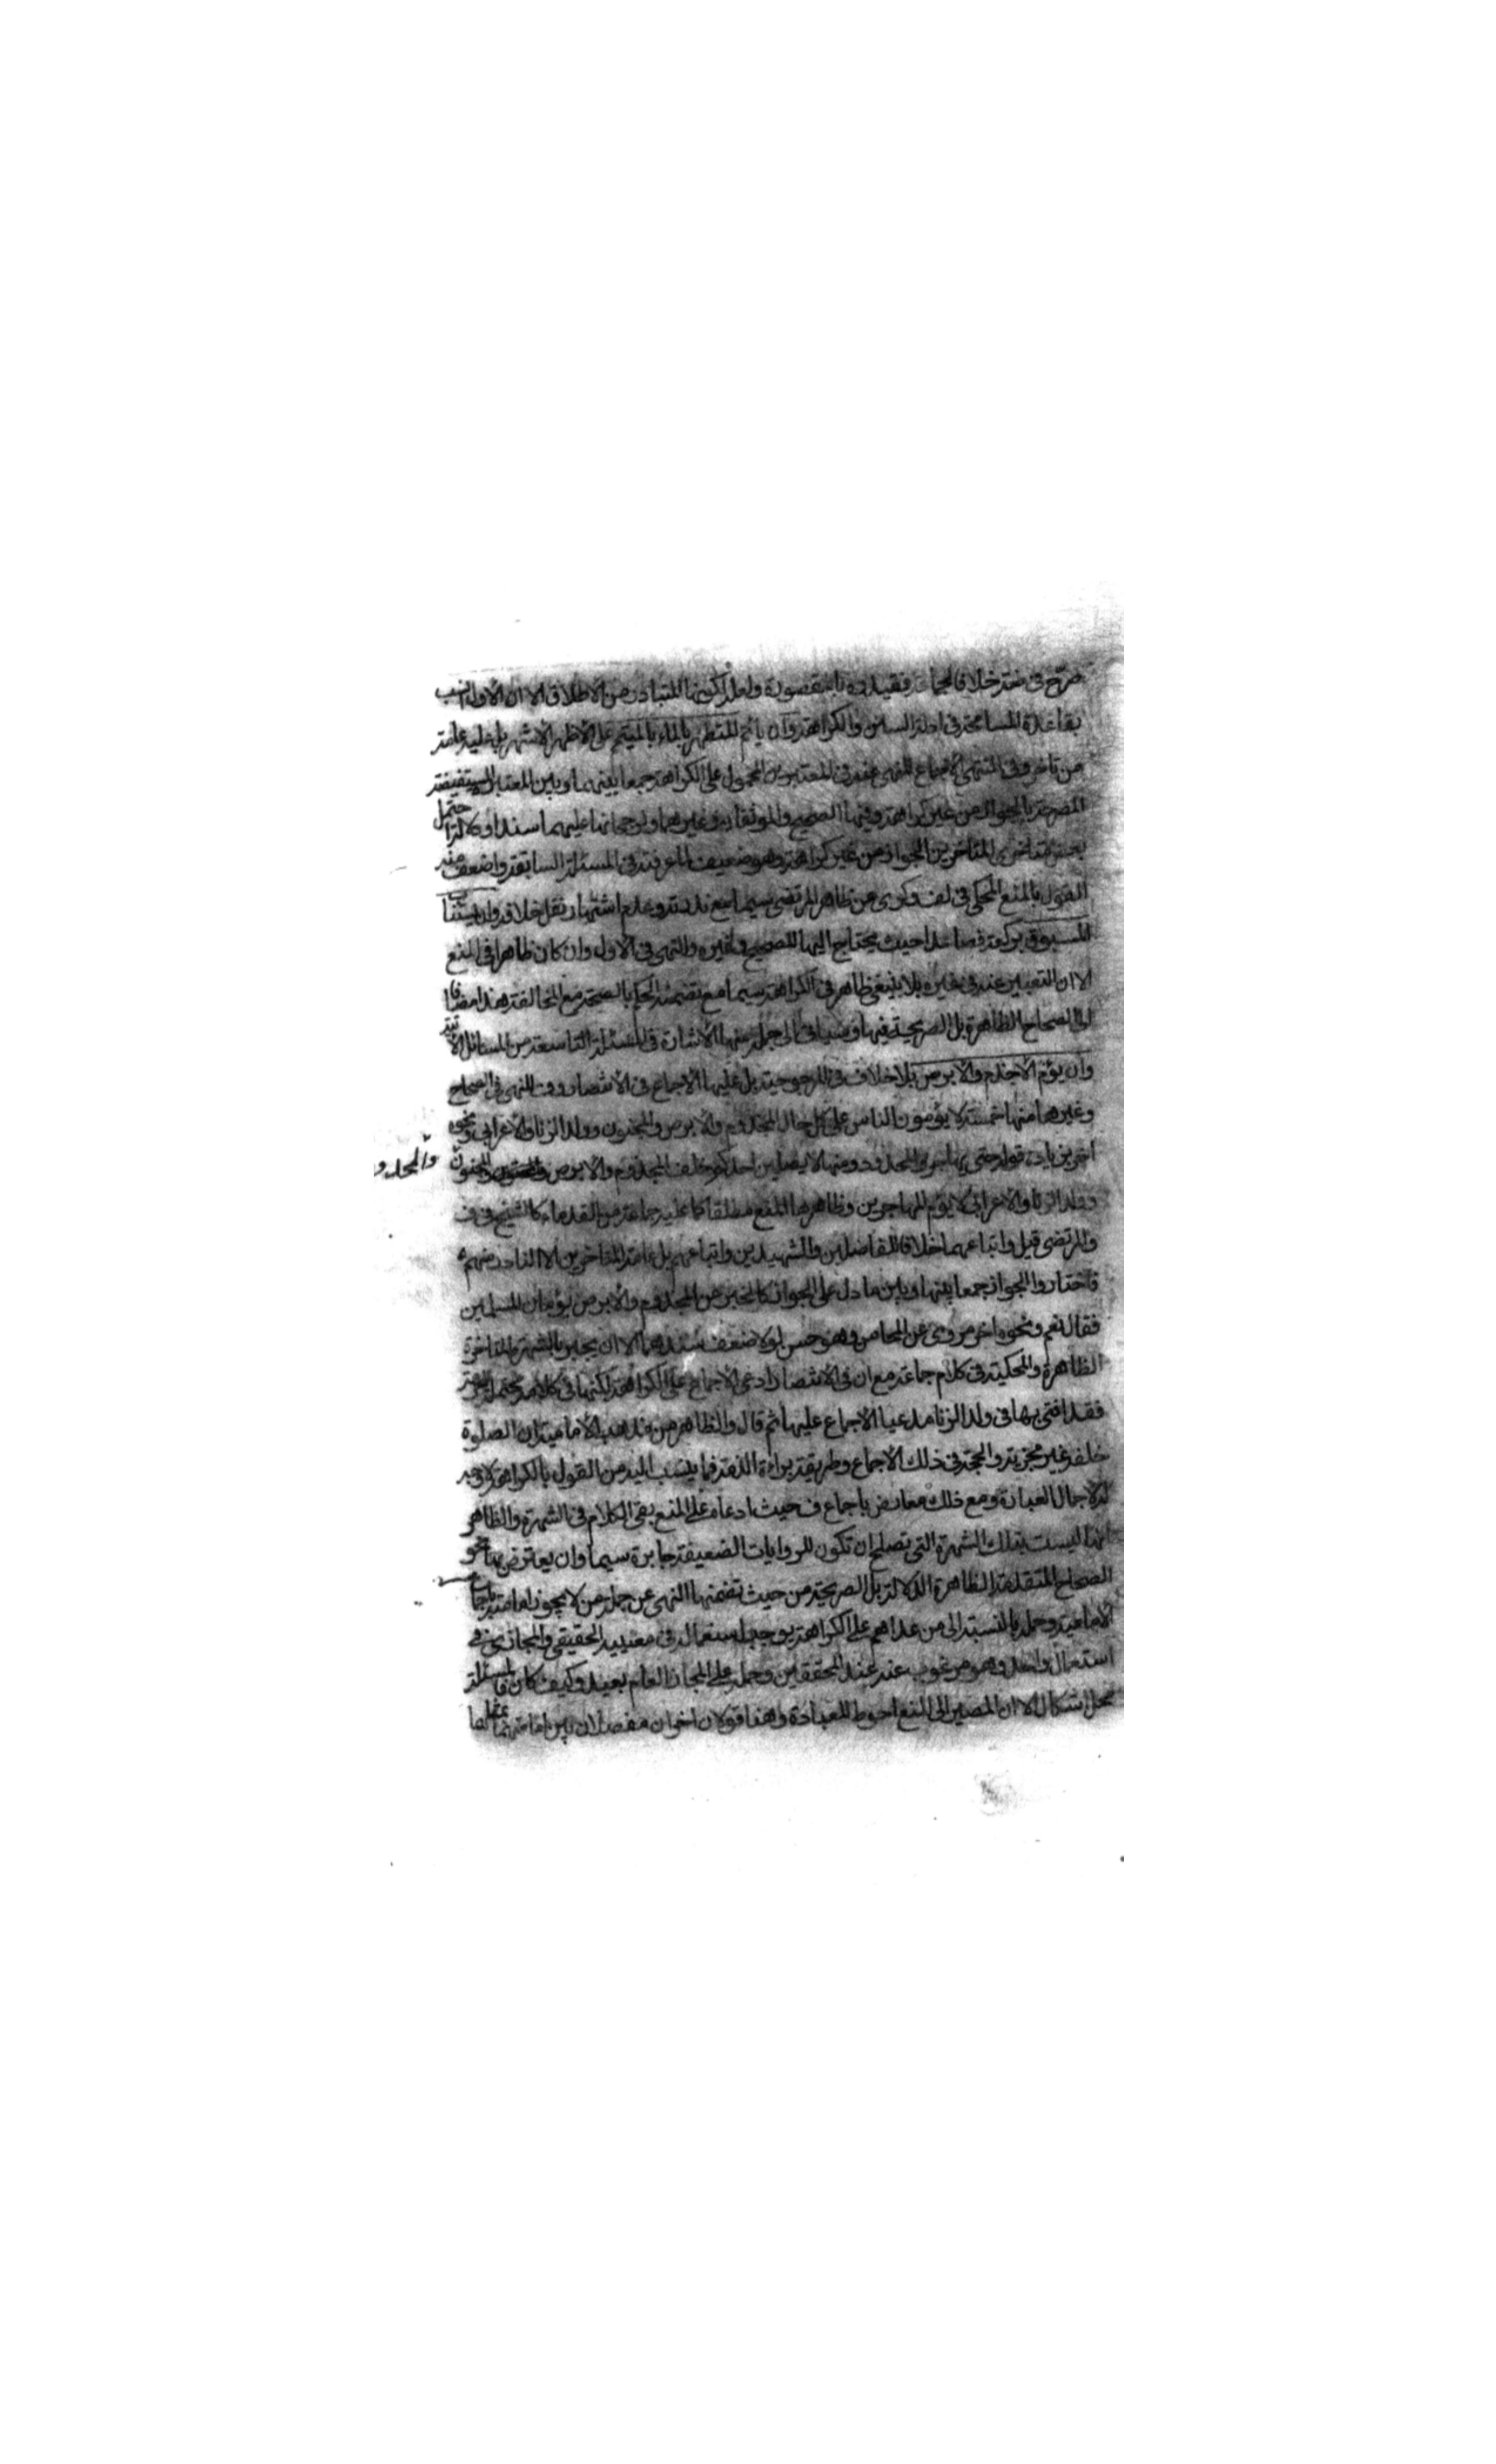 صرح في ضة خلافا لجماعة فقيدوه بالمقصورة ولعله لكونها المتبادر من الاطلاق الا ان الاول انسب
بقاعدة المسامحة في ادلة السنن والكراهة وان يأتم المتطهر بالماء بالمتيمم على الاظهر الاشهر بل عليه عامة
من تاخر وفي المنتهى الاجماع للنهي عنه في المعتبرين المحمول على الكراهة جمعا بينهما وبين المعتبرة المستفيضة
المصرحة بالجواز من غير كراهة وفيها الصحيح والموثقان وغيرهما ولرجحانها عليهما سندا ودلالة احتمل
بعض متاخري المتاخرين الجواز من غير كراهة وهو ضعيف لما عرفته في المسئلة السابقة واضعف منه
القول بالمنع المحكي في لف وكرى عن ظاهر المرتضى سيما مع ندرته وعدم اشتهار نقل خلافه وان يستناب
المسبوق بركعة فصاعدا حيث يحتاج اليها للصحيح وغيره والنهي في الاول وان كان ظاهرا في المنع
الا ان التعبير عنه في غيره بلا ينبغي ظاهر في الكراهة سيما مع تضمنه الحكم بالصحة مع المخالفة هذا مضافا
الى الصحاح الظاهرة بل الصريحة فيها وسياتي الى جملة منها الاشارة في المسئلة التاسعة من المسائل الاتية
وان يؤم الاجذم والابرص بلا خلاف في المرجوحية بل عليها الاجماع في الانتصار وفت للنهي في الصحاح
وغيرها منها خمسة لا يؤمون الناس على كل حال المجذوم والابرص والمجنون وولد الزنا والاعرابي ونحوه
اخر بزيادة قوله حتى يهاجر والمحدود ومنها لا يصلين احدكم خلف المجذوم والابرص والمجنون والمحدود
وولد الزنا والاعرابي لا يؤم المهاجرين وظاهرها المنع مطلقا كما عليه جماعة من القدماء كالشيخ في ف
والمرتضى قيل واتباعهما خلافا للفاضلين والشهيدين واتباعهم بل عامة المتاخرين الا النادر منهم
فاختاروا الجواز جمعا بينها وبين ما دل على الجواز كالخبر عن المجذوم والابرص يؤمان المسلمين
فقال نعم ونحوه اخر مروي عن المحاسن وهو حسن لولا ضعف سندهما الا ان يجبر بالشهرة المتاخرة
الظاهرة والمحكية في كلام جماعة مع ان في الانتصار ادعى الاجماع على الكراهة لكنها في كلامه محتملة للحرمة
فقد افتى بها في ولد الزنا مدعيا الاجماع عليها ثم قال والظاهر من مذهب الامامية ان الصلوة
خلفه غير مجزية والحجة في ذلك الاجماع وطريقة براءة الذمة فما ينسب اليه من القول بالكراهة لا وجه
له لاجمال العبارة ومع ذلك معارض باجماع ف حيث ادعاه على المنع بقي الكلام في الشهرة والظاهر
انها ليست بتلك الشهرة التي تصلح ان تكون للروايات الضعيفة جابرة سيما وان يعترض بها نحو
الصحاح المتقدمة الظاهرة الدلالة بل الصريحة من حيث تضمنها النهي عن جملة من لا يجوز امامته باجماع
الامامية وحمله بالنسبة الى من عداهم على الكراهة يوجب استعماله في معنييه الحقيقي والمجازي في
استعمال واحد وهو مرغوب عنه عند المحققين وحمله على المجاز العام بعيد وكيف كان فالمسئلة
محل اشكال الا ان المصير الى المنع احوط للعبادة وهنا قولان اخران مفصلان بين امامتهما بمثلهما